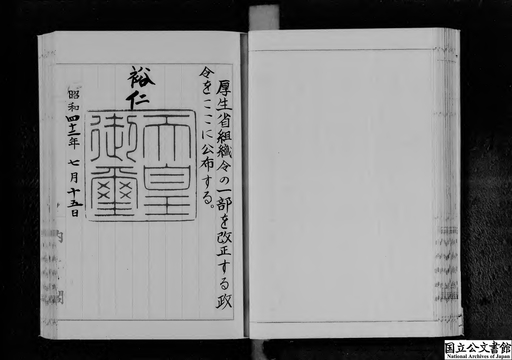 厚生省組織令の一部を改正する政
令をここに公布する。
裕仁
天皇
御璽
昭和四十二年七月十五日
内閣
国立公文書館
National Archives of Japan